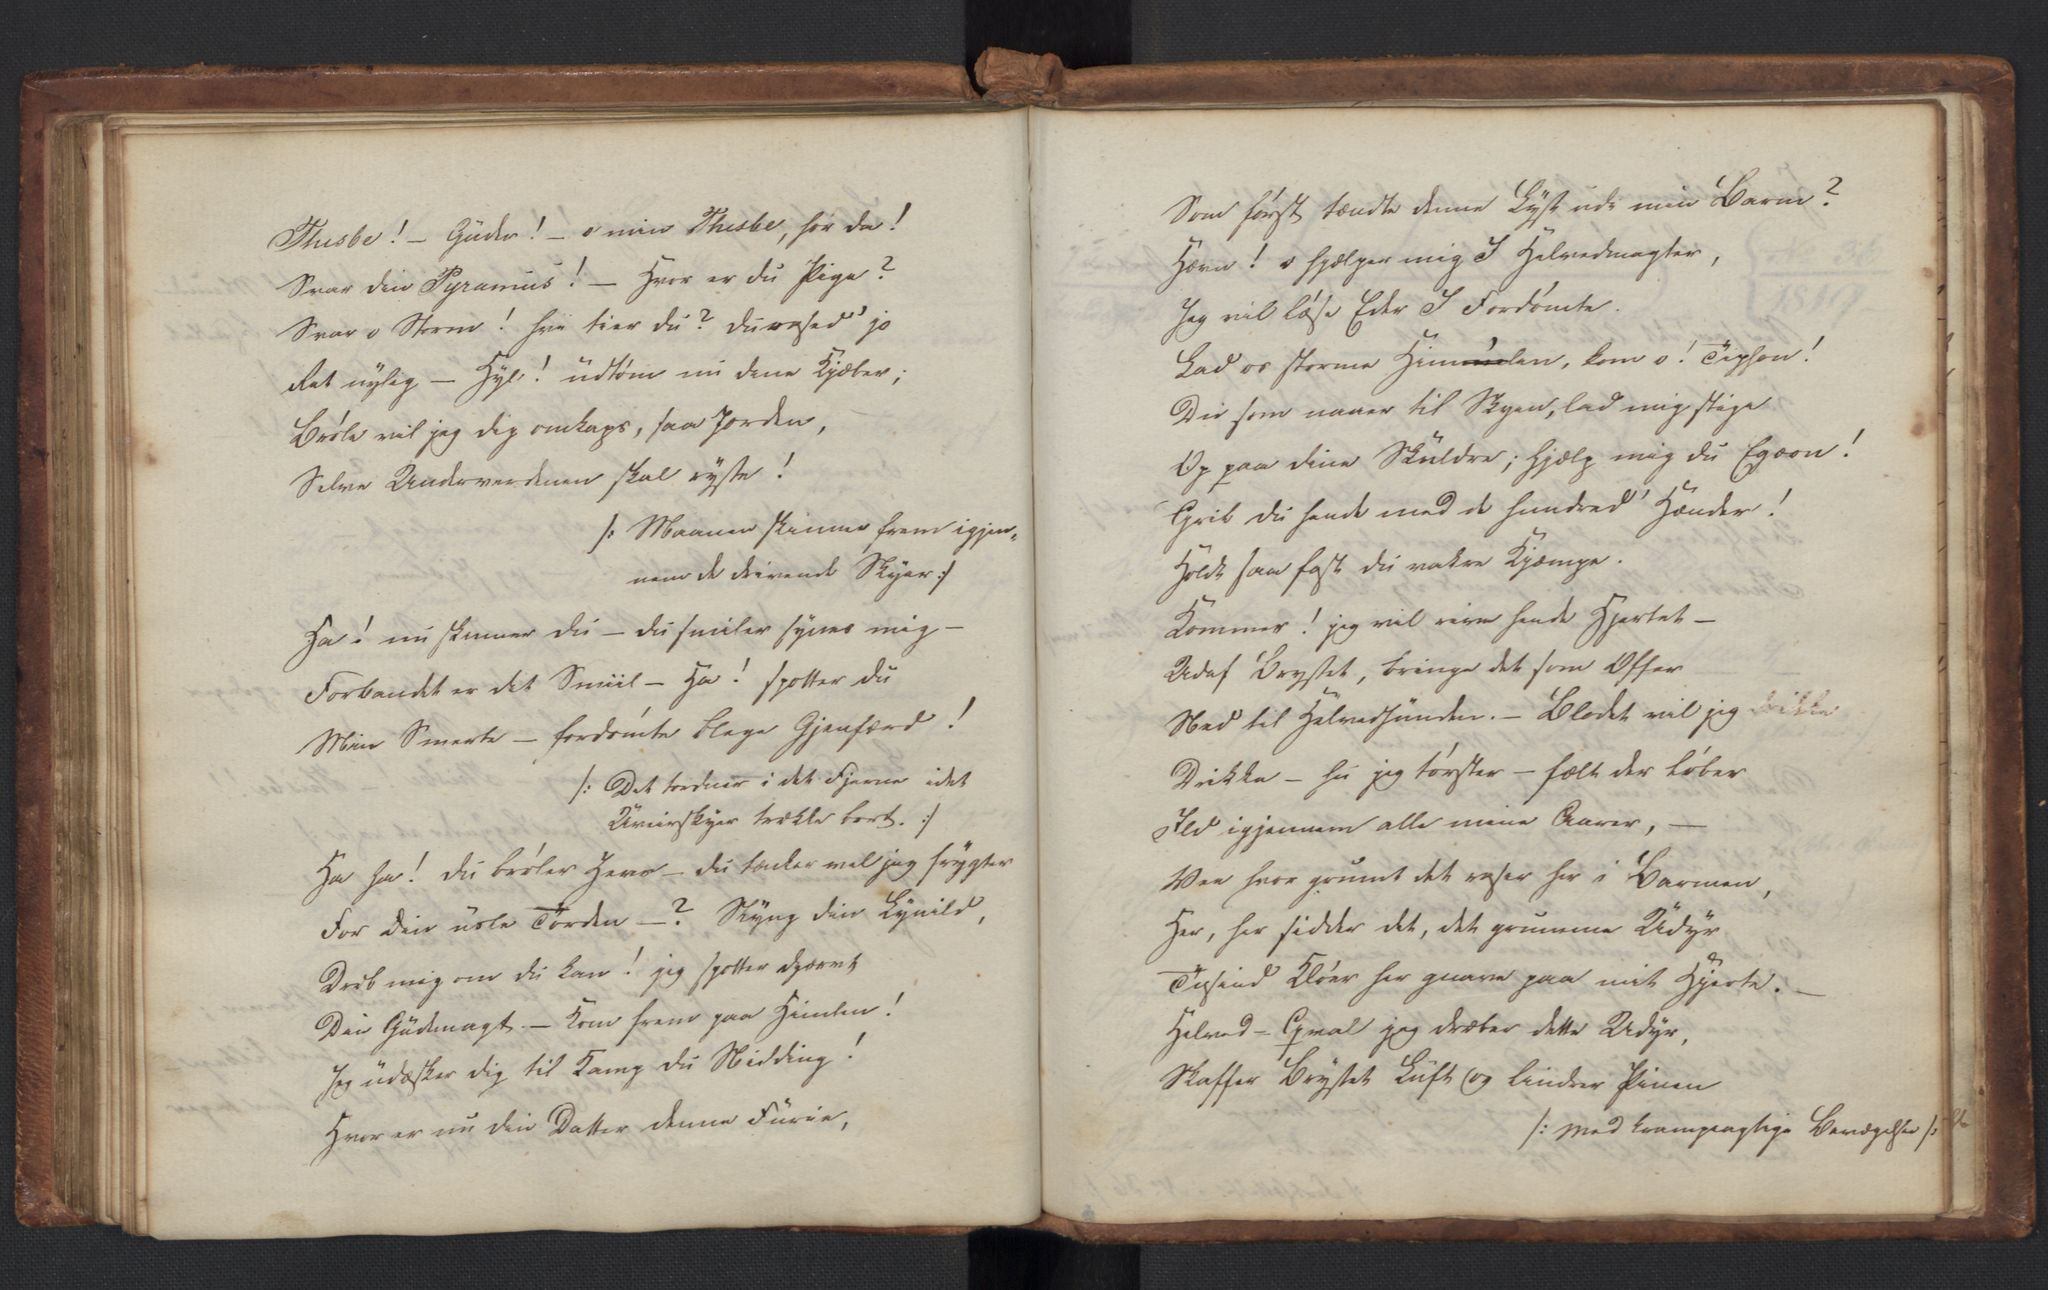 Thisbe! — Guder! — o min Thisbe, hør da!
Svar din Pyramus! — Hvor er du Pige?
Svar o Storm! hvi tier du? du rased' jo
Ret nylig — Hyl! udtøm nu dine Kjæber;
Brøle vil jeg dig omkaps, saa Jorden,
Selve Underverdenen skal ryste!
/: Maanen skinner frem igjen-
nem de drivende Skyer :/
Ha! nu skinner du — du smiler synes mig —
Forbandet er det Smiil — Ha! spotter du
Min Smerte — fordømte blege Gjenfærd!
/: Det tordner i det Fjerne idet
Uveirskyer trække bort. :/
Ha ha! du brøler Zevs — du tænker vel jeg frygter
For din usle Torden —? Slyng din Lynild,
Dræb mig om du kan! jeg spotter djærvt
Din Gudemagt. — Kom frem paa Himlen!
Jeg udæsker dig til Kamp du Nidding!
Hvor er nu din Datter denne Furie,
Som først tændte denne Lyst udi min Barm?
Hævn! o hjælper mig I Helvedmagter,
Jeg vil løse Eder I Fordømte.
Lad os storme Himlen, kom o! Typhon!
Du som naaer til Skyen, lad mig stige
Op paa dine Skuldre; hjælp mig du Egæon!
Grib du hende med de hundred' Hænder!
Hold saa fast du vakre Kjæmpe.
Kommer! jeg vil rive hende Hjertet —
Udaf Brystet, bringe det som Offer
Ned til Helvedhunden. — Blodet vil jeg drikke
Drikke — hu jeg tørster — fælt der løber
Ild igjennem alle mine Aarer, —
Vee hvor grumt det raser her i Barmen,
Her, her sidder det, det grumme Udyr
Tusind Kløer her gnave paa mit Hjerte. —
Helved-Qval jeg dræber dette Udyr,
Skaffer Brystet Luft og lindrer Pinen
/: med krampeagtige Bevægelser /: